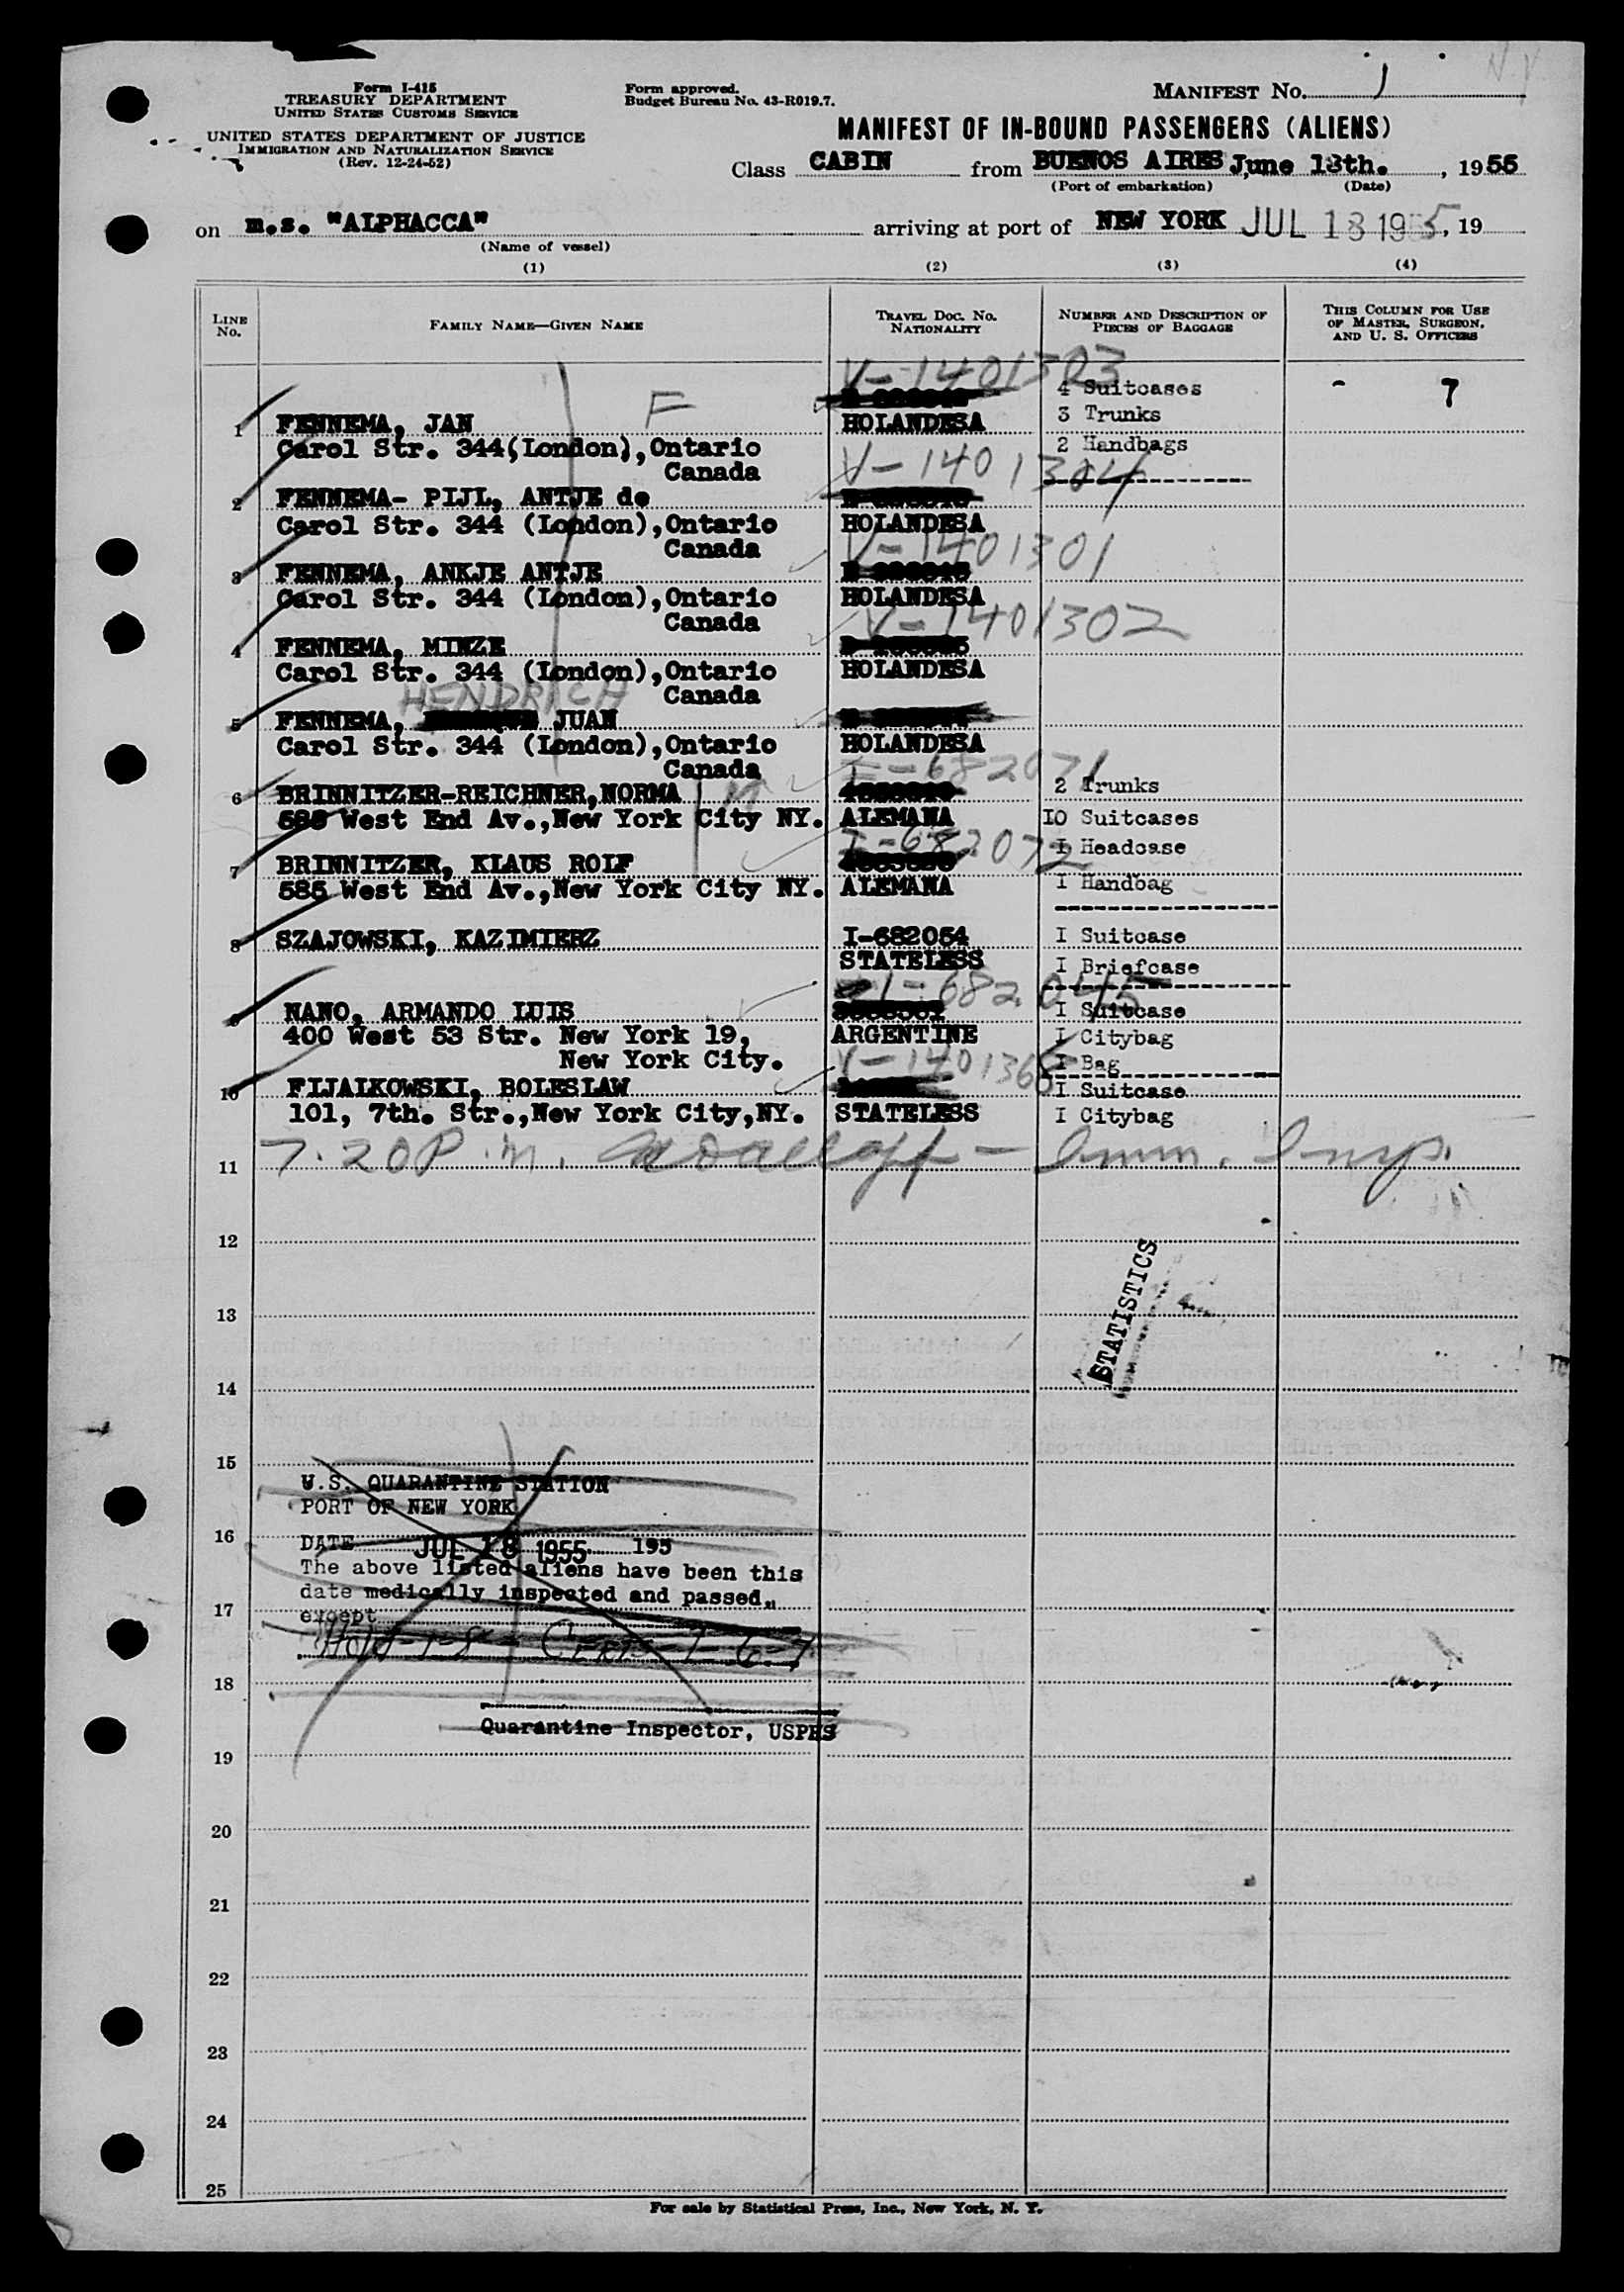 Form I-415
TREASURY DEPARTMENT
UNITED STATES CUSTOMS SERVICE
UNITED STATES DEPARTMENT OF JUSTICE
IMMIGRATION AND NATURALIZATION SERVICE
(Rev. 12-24-52)
Form approved.
Budget Bureau No. 43-R019.7.
MANIFEST No. 1
MANIFEST OF IN-BOUND PASSENGERS (ALIENS)
Class CABIN from BUENOS AIRES, June 13th., 1955
(Port of embarkation) (Date)
on m.s. "ALPHACCA" arriving at port of NEW YORK JUL 18 1955, 19
(Name of vessel)
(1) (2) (3) (4)
LINE No. FAMILY NAME—GIVEN NAME TRAVEL DOC. NO. NATIONALITY NUMBER AND DESCRIPTION OF PIECES OF BAGGAGE THIS COLUMN FOR USE OF MASTER, SURGEON, AND U. S. OFFICERS
V-1401303 4 Suitcases - 7
F 3 Trunks
1 FENNEMA, JAN HOLANDESA
Carol Str. 344(London),Ontario 2 Handbags
Canada V-1401304
2 FENNEMA- PIJL, ANTJE de
Carol Str. 344 (London),Ontario HOLANDESA
Canada V-1401301
3 FENNEMA, ANKJE ANTJE
Carol Str. 344 (London),Ontario HOLANDESA
Canada V-1401302
4 FENNEMA, MINZE
Carol Str. 344 (London),Ontario HOLANDESA
HENDRICA Canada
5 FENNEMA, JUAN
Carol Str. 344 (London),Ontario HOLANDESA
Canada I-682071
6 BRINNITZER-REICHNER,NORMA 2 Trunks
585 West End Av.,New York City NY. ALEMANA IO Suitcases
I-682072 I Headcase
7 BRINNITZER, KLAUS ROLF
585 West End Av.,New York City NY. ALEMANA I Handbag
8 SZAJOWSKI, KAZIMIERZ I-682054 I Suitcase
STATELESS I Briefcase
I-682045
9 NANO, ARMANDO LUIS I Suitcase
400 West 53 Str. New York 19, ARGENTINE I Citybag
New York City. I Bag
10 FIJALKOWSKI, BOLESLAW I Suitcase
101, 7th. Str.,New York City,NY. STATELESS I Citybag
7.20 P.m. Imm. Insp.
11
12
STATISTICS
13
14
15
U.S. QUARANTINE STATION
PORT OF NEW YORK
16
DATE JUL 18 1955 195
The above listed aliens have been this
date medically inspected and passed,
17
except
18
Quarantine Inspector, USPHS
19
20
21
22
23
24
25
For sale by Statistical Press, Inc., New York, N. Y.